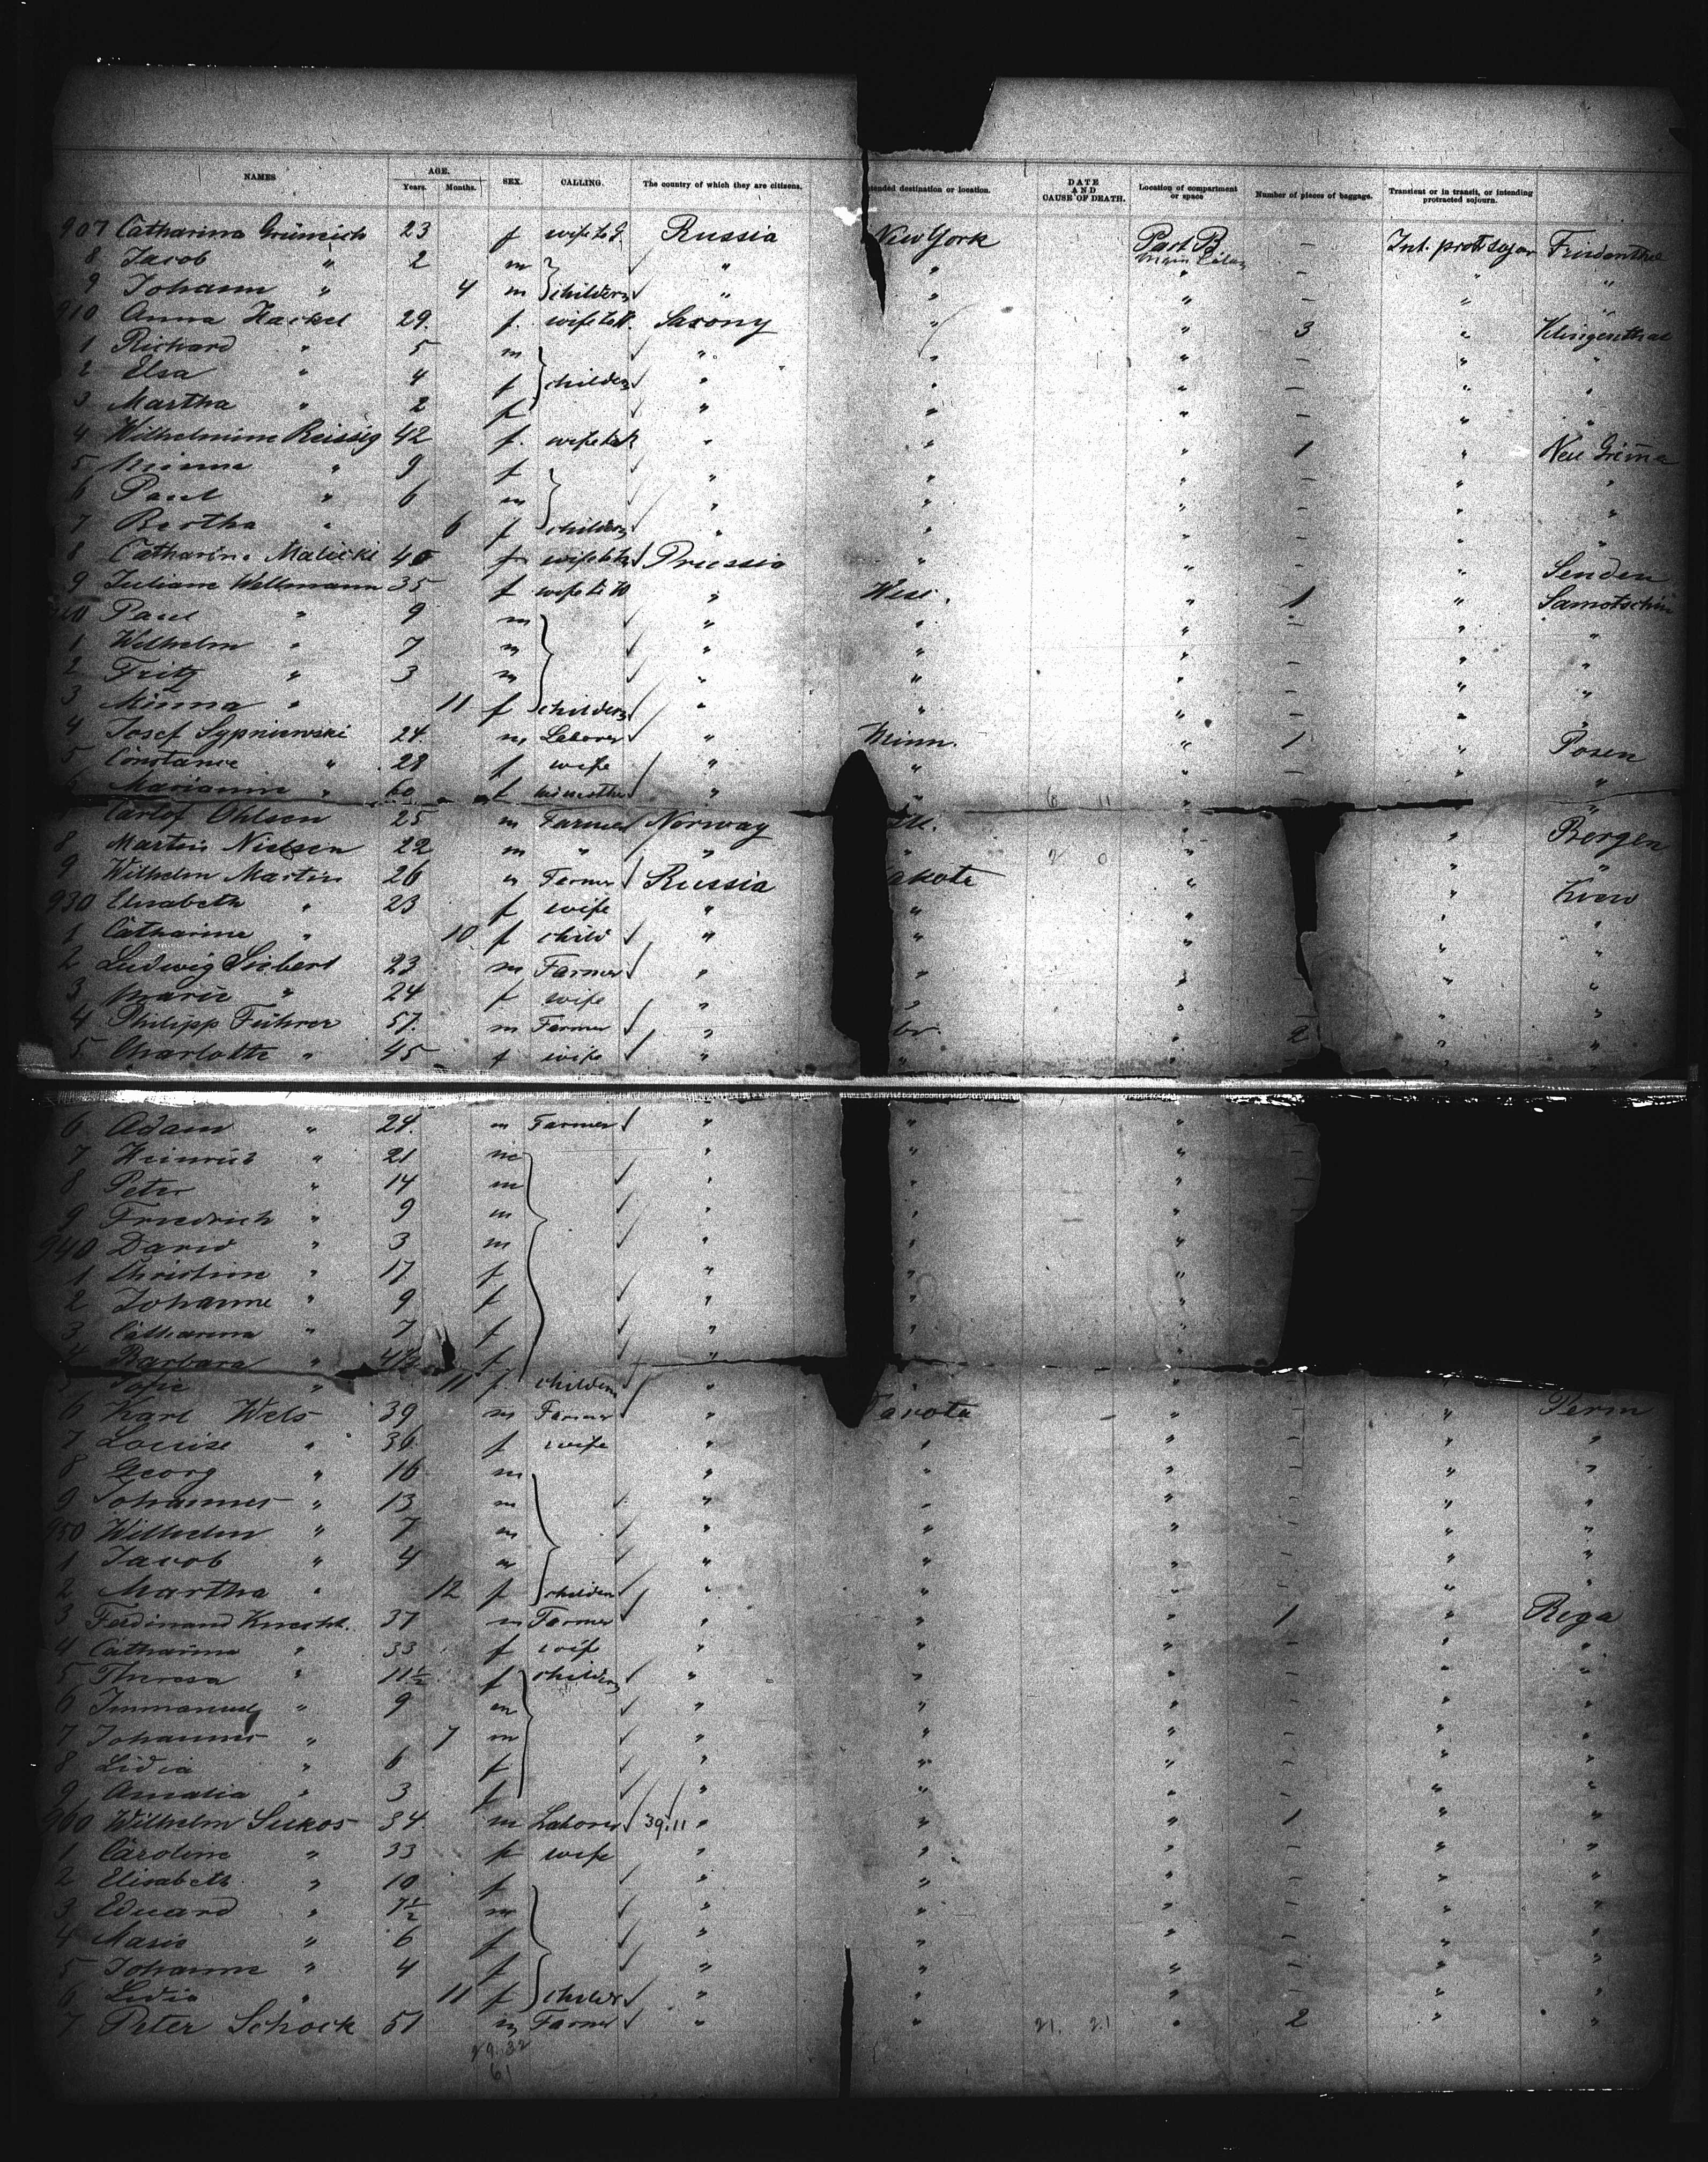 NAMES AGE. Years. Months. SEX. CALLING. The country of which they are citizens. tended destination or location. DATE AND CAUSE OF DEATH. Location of compartment or space Number of pieces of baggage. Transient or in transit, or intending protracted sojourn.
907 Catharina 23 f wife to G. Russia New York Part B - Int. prot. sojor
8 Jacob " 2 m " " " - "
9 Johann " 4 m children " " " - " "
910 Anna Hackel 29. f. wife to H. Saxony " " 3 " Klingenthal
1 Richard " 5 m " " " - " "
2 Elsa " 4 f children " " " - " "
3 Martha " 2 f " " " - " "
4 Wilhelmine Reissig 42 f. wife to R " " " 1 " Neu Grimma
5 Minna " 9 f " " " - " "
6 Paul " 6 m " " " - " "
7 Bertha " 6 f children " " " - " "
8 Catharine Malicki 40 f wife to M Prussia " " " Senden
9 Juliane Wellmann 35 f wife to W " Wisc. " 1 " Samotschin
920 Paul " 9 m " " " - " "
1 Wilhelm " 7 m " " " - " "
2 Fritz " 3 m " " " - " "
3 Minna " 11 f children " " " - " "
4 Josef Sypniewski 24. m Laborer " Minn. " 1 " Posen
5 Constance " 28 f wife " " " - " "
6 Marianne " 60 f " 6 11 " "
7 Carlof Ohlsen 25 m Farmer Norway Ill. " " Bergen
8 Martin Nielsen 22 m " " " 2 0 " " "
9 Wilhelm Martin 26 m Farmer Russia akota " " Kiew
930 Elisabeth " 23 f wife " " " " "
1 Catharine " 10 f child " " " " "
2 Ludwig Siebert 23 m Farmer " " " " "
3 Marie " 24 f wife " " " " "
4 Philipp Führer 57. m Farmer " br. " 2 " "
5 Charlotte " 45 f wife " " " " "
6 Adam " 24. m Farmer " " " -
7 Heinrich " 21 m " " " -
8 Peter " 14 m " " " -
9 Friedrich " 9 m " " "
940 David " 3 m " " "
1 Christine " 17 f " " "
2 Johanne " 9 f " " "
3 Catharina " 7 f " " "
4 Barbara " 4 f " "
5 Sofie " 11 f. children " " "
6 Karl Wels 39 m Farmer " akota " - " Perm
7 Louise " 36 f wife " " " - " "
8 Georg " 16 m " " " - " "
9 Johannes " 13 m " " " - " "
950 Wilhelm " 7 m " " " - " "
1 Jacob " 4 m " " " - " "
2 Martha " 12 f children " " " - " "
3 Ferdinand Knecht. 37 m Farmer " " " 1 " Riga
4 Catharina " 33 f wife " " " - " "
5 Theresa " 11½ f children " " " - " "
6 Immanuel " 9 m " " " - " "
7 Johannes " 7 m " " " - " "
8 Lidia " 6 f " " " - " "
9 Amalia " 3 f " " " - " "
960 Wilhelm 34. m Laborer 39.11 " " " 1 " "
1 Caroline " 33 f wife " " " - " "
2 Elisabeth " 10 f " " " - " "
3 Eduard " 7½ m " " " - " "
4 Marie " 6 f " " " - " "
5 Johanne " 4 f " " " - " "
6 Lidia " 11 f children " " " - " "
7 Peter Schock 51 m Farmer " " 21. 21 " 2 " "
29.32
61